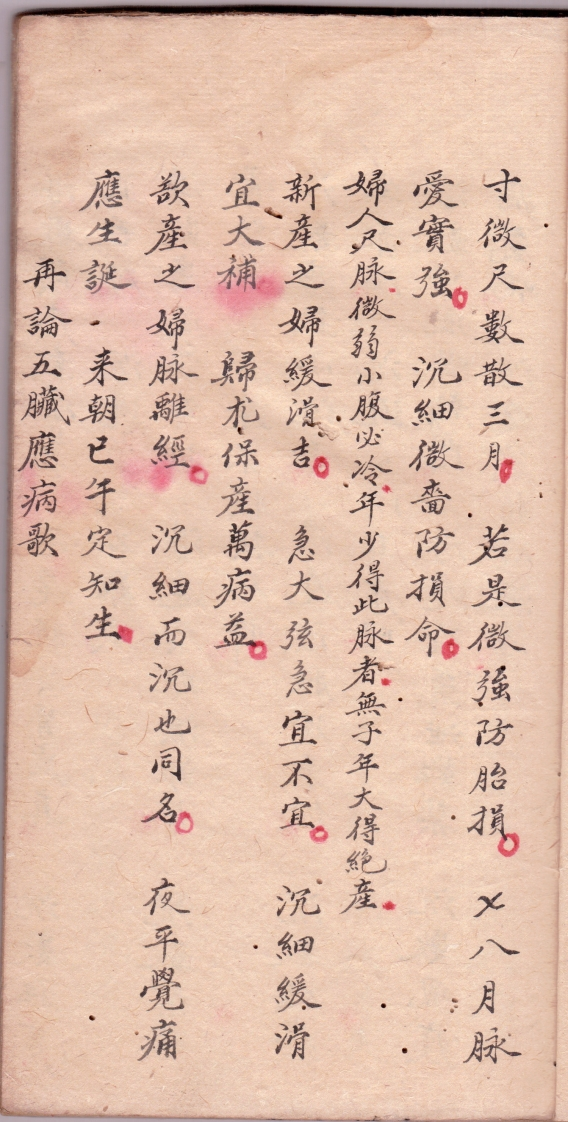 寸微尺數散三月 若是微強防胎損 〤八月脉
愛實強 沉細微嗇防損命
婦人尺脉微弱小腹必冷年少得此脉者無子年大得絶産
新産之婦緩滑吉 急大弦急宜不宜 沉細緩滑
宜大補 歸朮保産萬病益
欲産之婦脉離經 沉細而沉也同名 夜平覺痛
應生誕 来朝巳午定知生
再論五臓應病歌